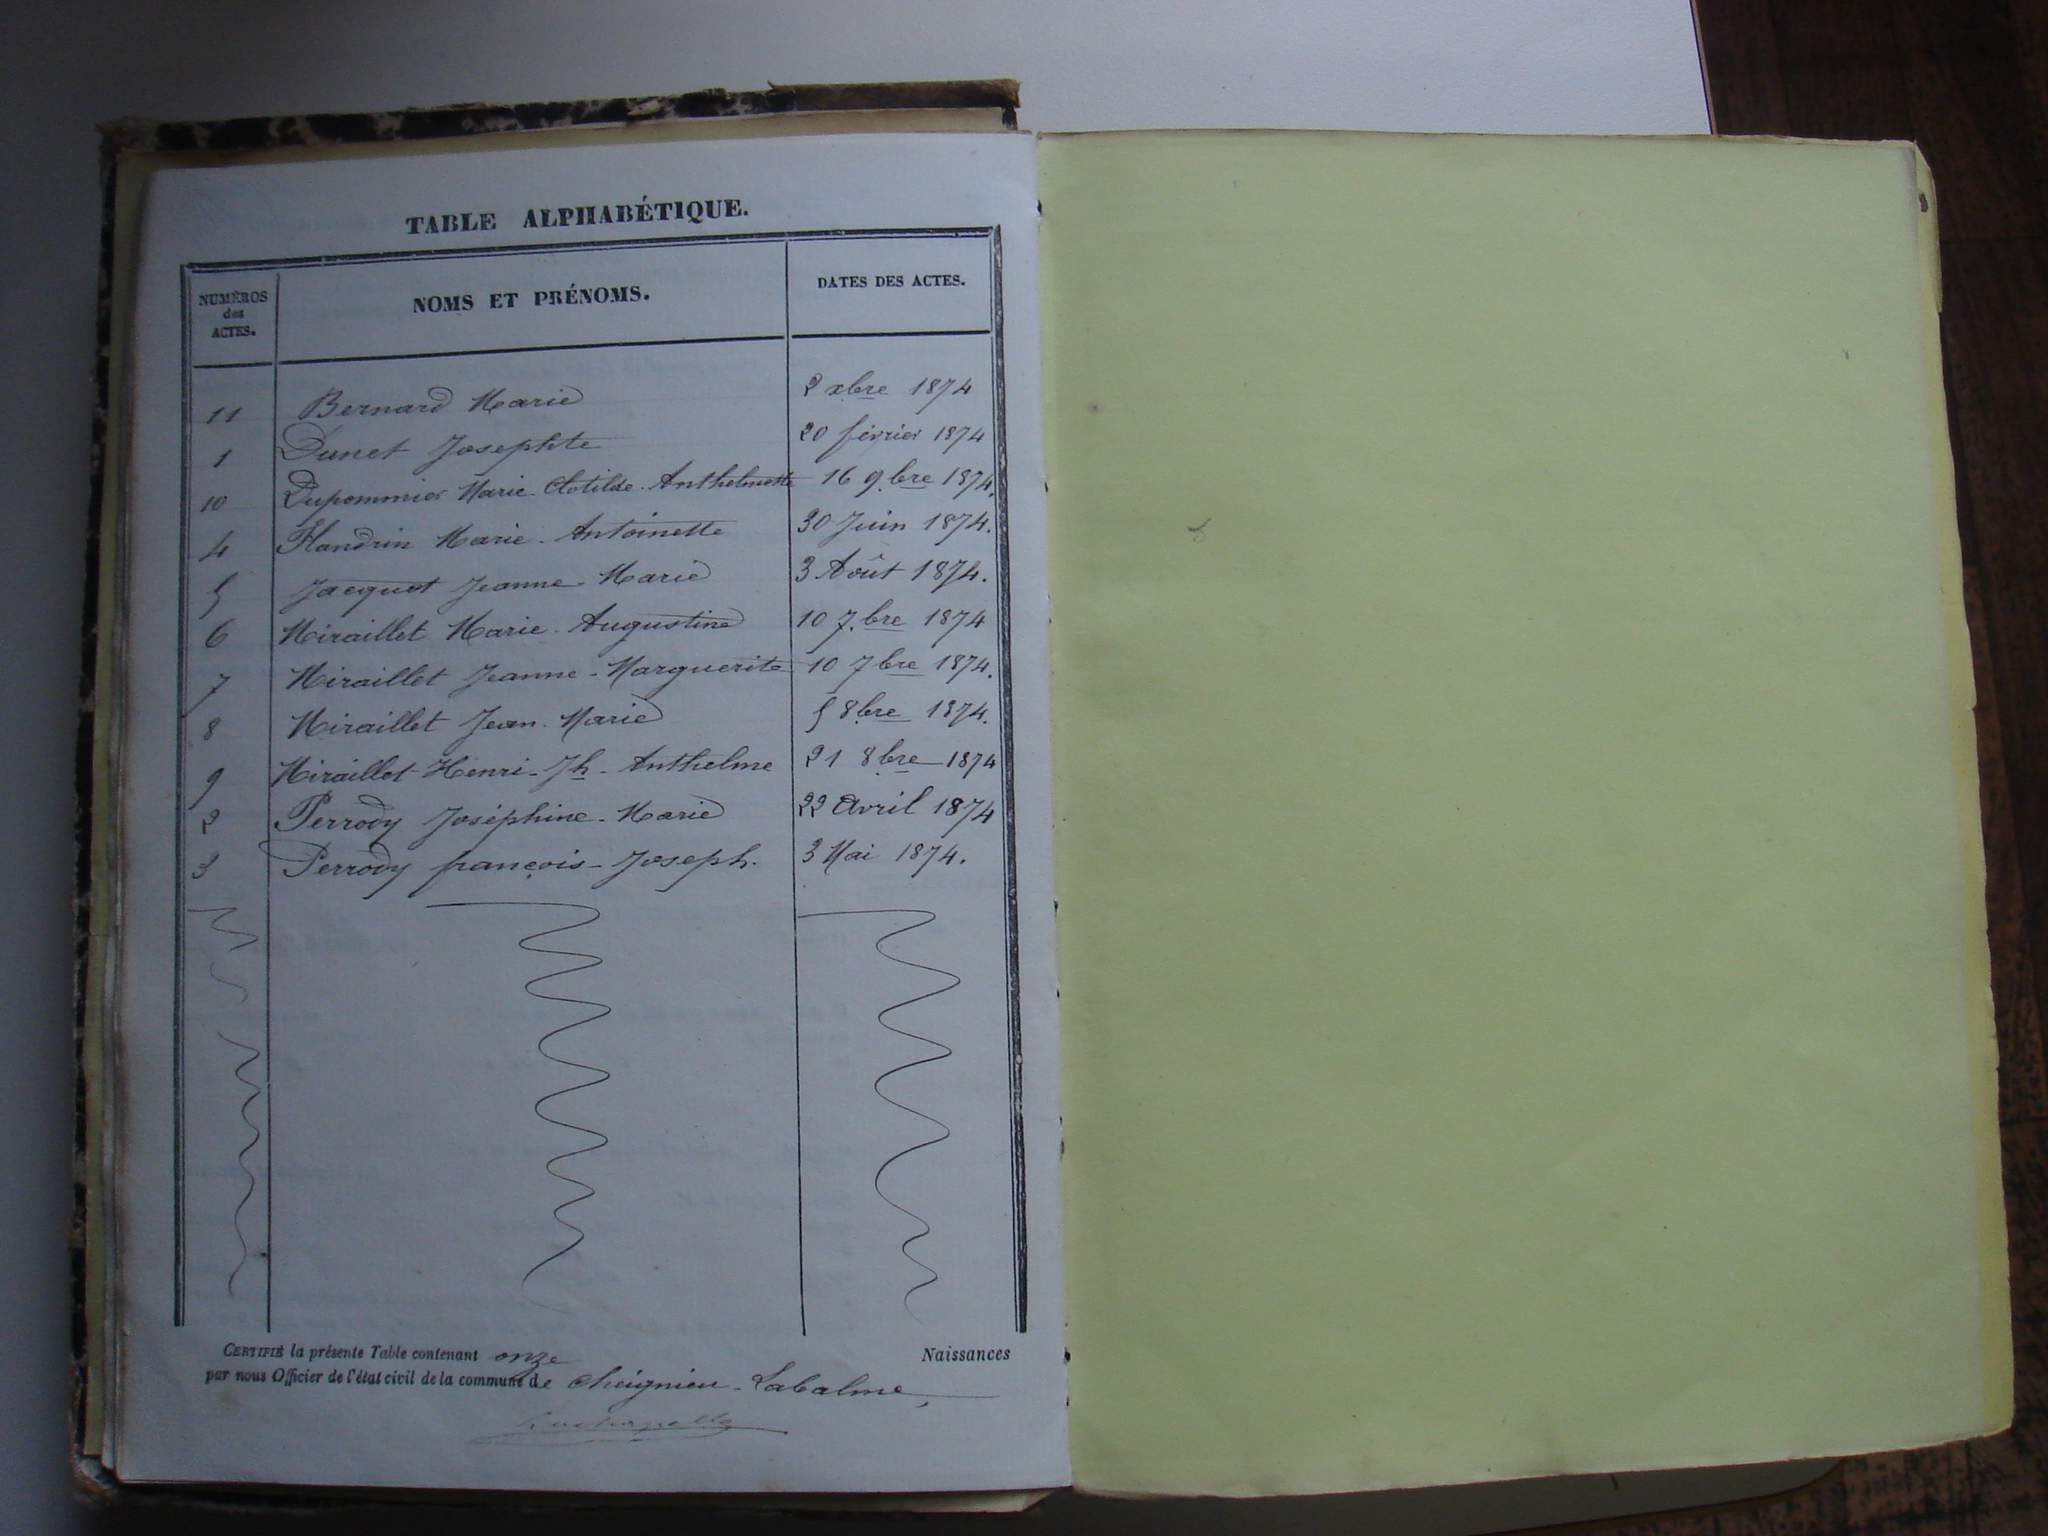 TABLE ALPHABÉTIQUE.
NUMÉROS des ACTES. NOMS ET PRÉNOMS. DATES DES ACTES.
11 Bernard Marie 2 xbre 1874
1 Dunet Josephte 20 février 1874
10 Dupommier Marie-Clotilde-Anthelmette 16 9bre 1874.
4 Flandrin Marie-Antoinette 30 Juin 1874.
5 Jacquet Jeanne-Marie 3 Août 1874.
6 Miraillet Marie-Augustine 10 7bre 1874
7 Miraillet Jeanne-Marguerite 10 7bre 1874.
8 Miraillet Jean-Marie 5 8bre 1874.
9 Miraillet Henri-Jh-Anthelme 21 8bre 1874
2 Perrody Joséphine-Marie 22 Avril 1874
3 Perrody françois-Joseph. 3 Mai 1874.
CERTIFIÉ la présente Table contenant onze Naissances
par nous Officier de l'état civil de la commune de Cheignieu-Labalme,